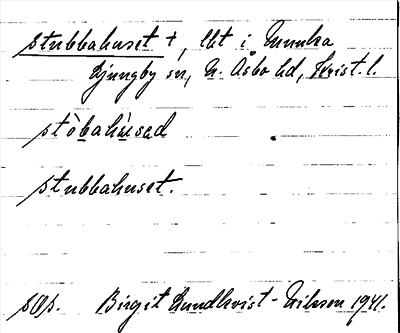 stubbahuset †, lht i Munka
Ljungby sn, N. Åsbo hd, Krist. l.
stòbahùsad
stubbahuset.
sOp. Birgit Lundkvist-Nilsson 1941.